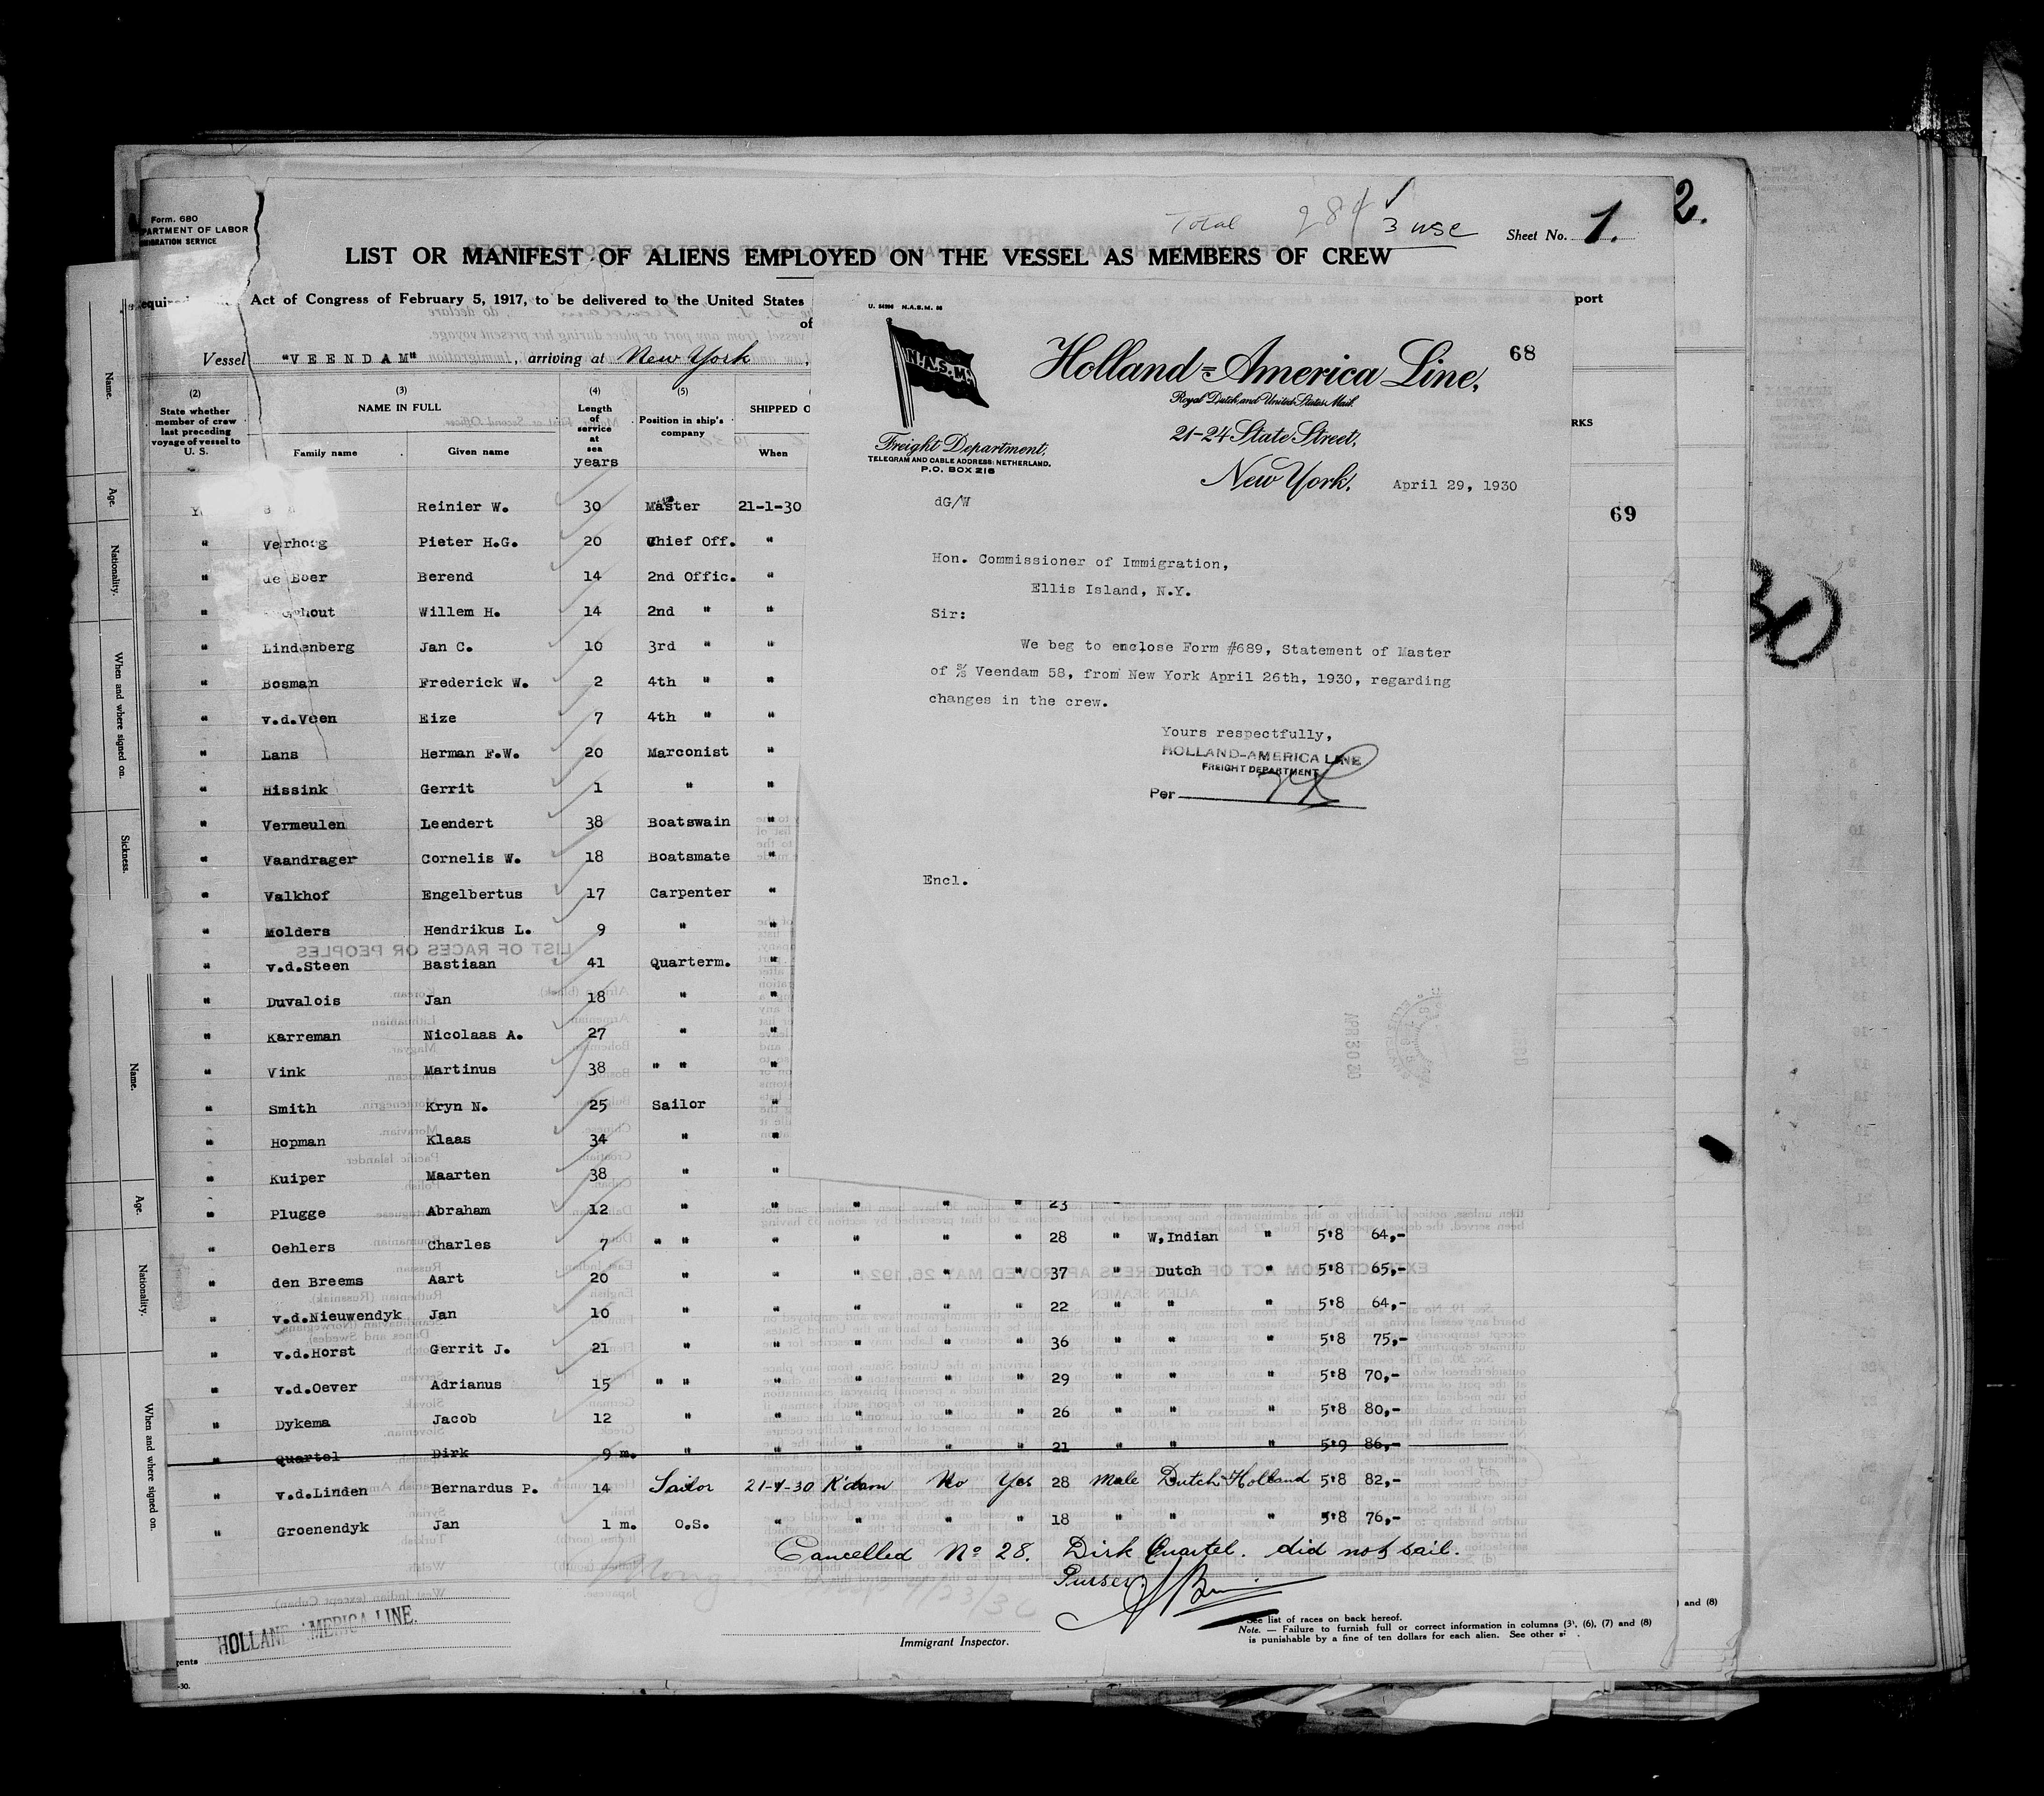 Form. 680
DEPARTMENT OF LABOR
IMMIGRATION SERVICE
Total 284 3 USC
Sheet No. 1.
2.
LIST OR MANIFEST OF ALIENS EMPLOYED ON THE VESSEL AS MEMBERS OF CREW
Act of Congress of February 5, 1917, to be delivered to the United States
port
of
Vessel "VEENDAM", arriving at New York,
(2) (3) (4) (5)
State whether member of crew last preceding voyage of vessel to U. S.
NAME IN FULL
Family name Given name
Length of service at sea
years
Position in ship's company
SHIPPED O
When
RKS
Reinier W. 30 Master 21-1-30
" Verhoog Pieter H.G. 20 Chief Off. "
" de Boer Berend 14 2nd Offic. "
" hout Willem H. 14 2nd " "
" Lindenberg Jan C. 10 3rd " "
" Bosman Frederick W. 2 4th " "
" v.d.Veen Eize 7 4th " "
" Lans Herman F.W. 20 Marconist "
" Hissink Gerrit 1 " "
" Vermeulen Leendert 38 Boatswain "
" Vaandrager Cornelis W. 18 Boatsmate "
" Valkhof Engelbertus 17 Carpenter "
" Molders Hendrikus L. 9 " "
" v.d.Steen Bastiaan 41 Quarterm. "
" Duvalois Jan 18 " "
" Karreman Nicolaas A. 27 " "
" Vink Martinus 38 " " "
" Smith Kryn N. 25 Sailor "
" Hopman Klaas 34 " "
" Kuiper Maarten 38 " "
" Plugge Abraham 12 " " " " " 23
" Oehlers Charles 7 " " " " " " 28 " W,Indian " 5'8 64,-
" den Breems Aart 20 " " " " " 37 " Dutch " 5'8 65,-
" v.d.Nieuwendyk Jan 10 " " " " " 22 " " " 5'8 64,-
" v.d.Horst Gerrit J. 21 " " " " " 36 " " " 5'8 75,-
" v.d.Oever Adrianus 15 " " " " " " 29 " " " 5'8 70,-
" Dykema Jacob 12 " " " " " 26 " " " 5'8 80,-
" Quartel Dirk 9 m. " " " " " 21 " " " 5'9 86,-
" v.d.Linden Bernardus P. 14 Sailor 21-4-30 R'dam No Yes 28 Male Dutch Holland 5'8 82,-
" Groenendyk Jan 1 m. O.S. " " " " 18 " " " 5'8 76,-
Cancelled No 28. Dirk Quartel. did not sail.
Purser.
HOLLAND AMERICA LINE.
gents
-30.
Immigrant Inspector.
See list of races on back hereof.
Note. — Failure to furnish full or correct information in columns (3), (6), (7) and (8)
is punishable by a fine of ten dollars for each alien. See other s
) and (8)
U. N.A.S.M. 
N.A.S.M.
Holland-America Line,
68
Royal Dutch and United States Mail.
21-24 State Street,
Freight Department.
TELEGRAM AND CABLE ADDRESS: NETHERLAND.
P.O. BOX 216
New York, April 29, 1930
69
dG/W
Hon. Commissioner of Immigration,
Ellis Island, N.Y.
Sir:
We beg to enclose Form #689, Statement of Master
of S/S Veendam 58, from New York April 26th, 1930, regarding
changes in the crew.
Yours respectfully,
HOLLAND-AMERICA LINE
FREIGHT DEPARTMENT
Per
Encl.
APR 30 30
Name.
Age.
Nationality.
When and where signed on.
Sickness.
Name.
Age.
Nationality.
When and where signed on.